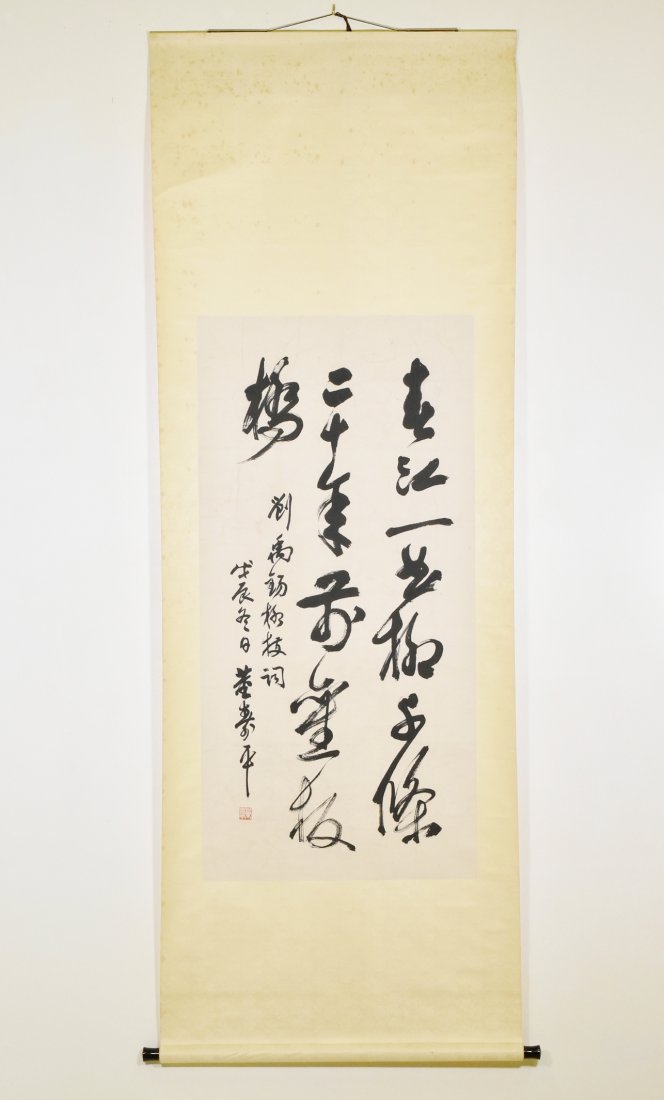 春江一曲柳千條
二十年前舊板
橋
劉禹錫柳枝詞
戊辰冬日董壽平